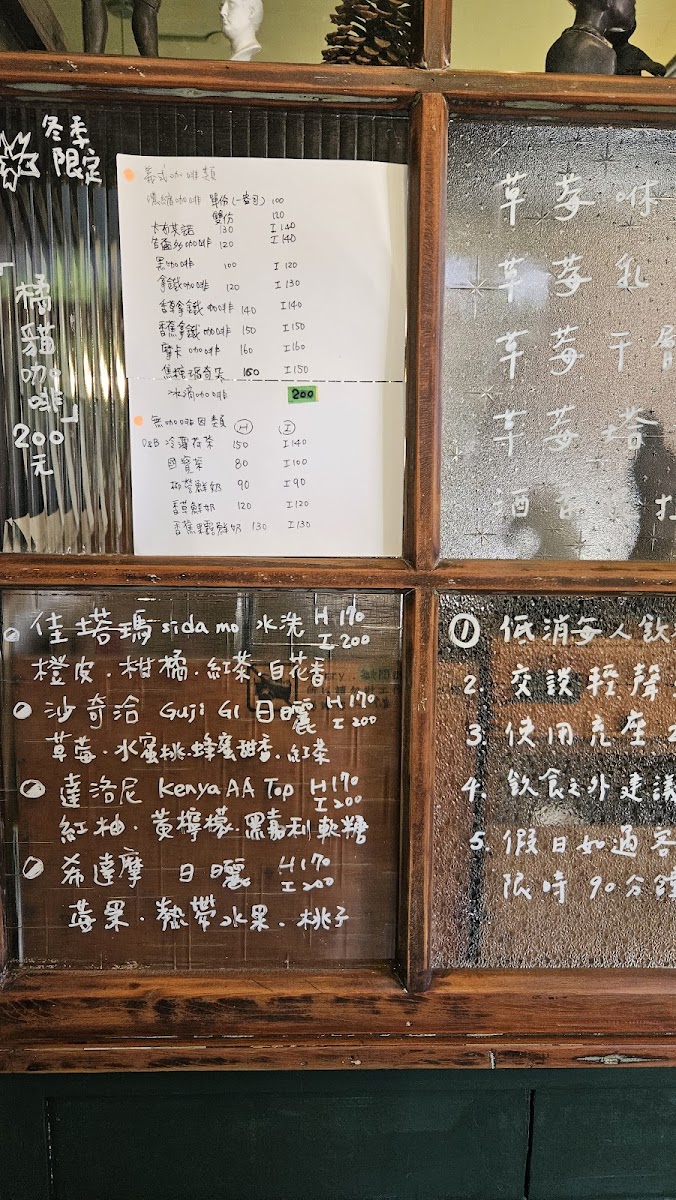 冬季
限定
「橘貓咖啡」
200
元
義式咖啡類
濃縮咖啡 單份(一盎司) 100
雙份 120
卡布其諾 130 I 140
咖啡 120 I 140
黑咖啡 100 I 120
拿鐵咖啡 120 I 130
香草拿鐵咖啡 140 I 140
香蕉拿鐵咖啡 150 I 150
摩卡咖啡 160 I 160
焦糖瑪奇朵 160 I 150
冰滴咖啡 200
無咖啡因類 H I
D&B 冷薄荷茶 150 I 140
國寶茶 80 I 100
鮮奶 90 I 90
香草鮮奶 120 I 120
香蕉果露鮮奶 130 I 130
草莓咻
草莓乳
草莓千層
草莓塔
酒
佳塔瑪 sidamo 水洗 H 170
I 200
橙皮.柑橘.紅茶.白花香
沙奇洽 Guji G1 日曬 H 170
I 200
草莓.水蜜桃.蜂蜜甜香.紅茶
達洛尼 Kenya AA Top H 170
I 200
紅柚.黃檸檬.黑嘉利軟糖
希達摩 日曬 H 170
I 200
莓果.熱帶水果.桃子
① 低消每人飲
2. 交談輕聲
3. 使用充座
4. 飲食之外建議
5. 假日如遇客
限時 90分鐘